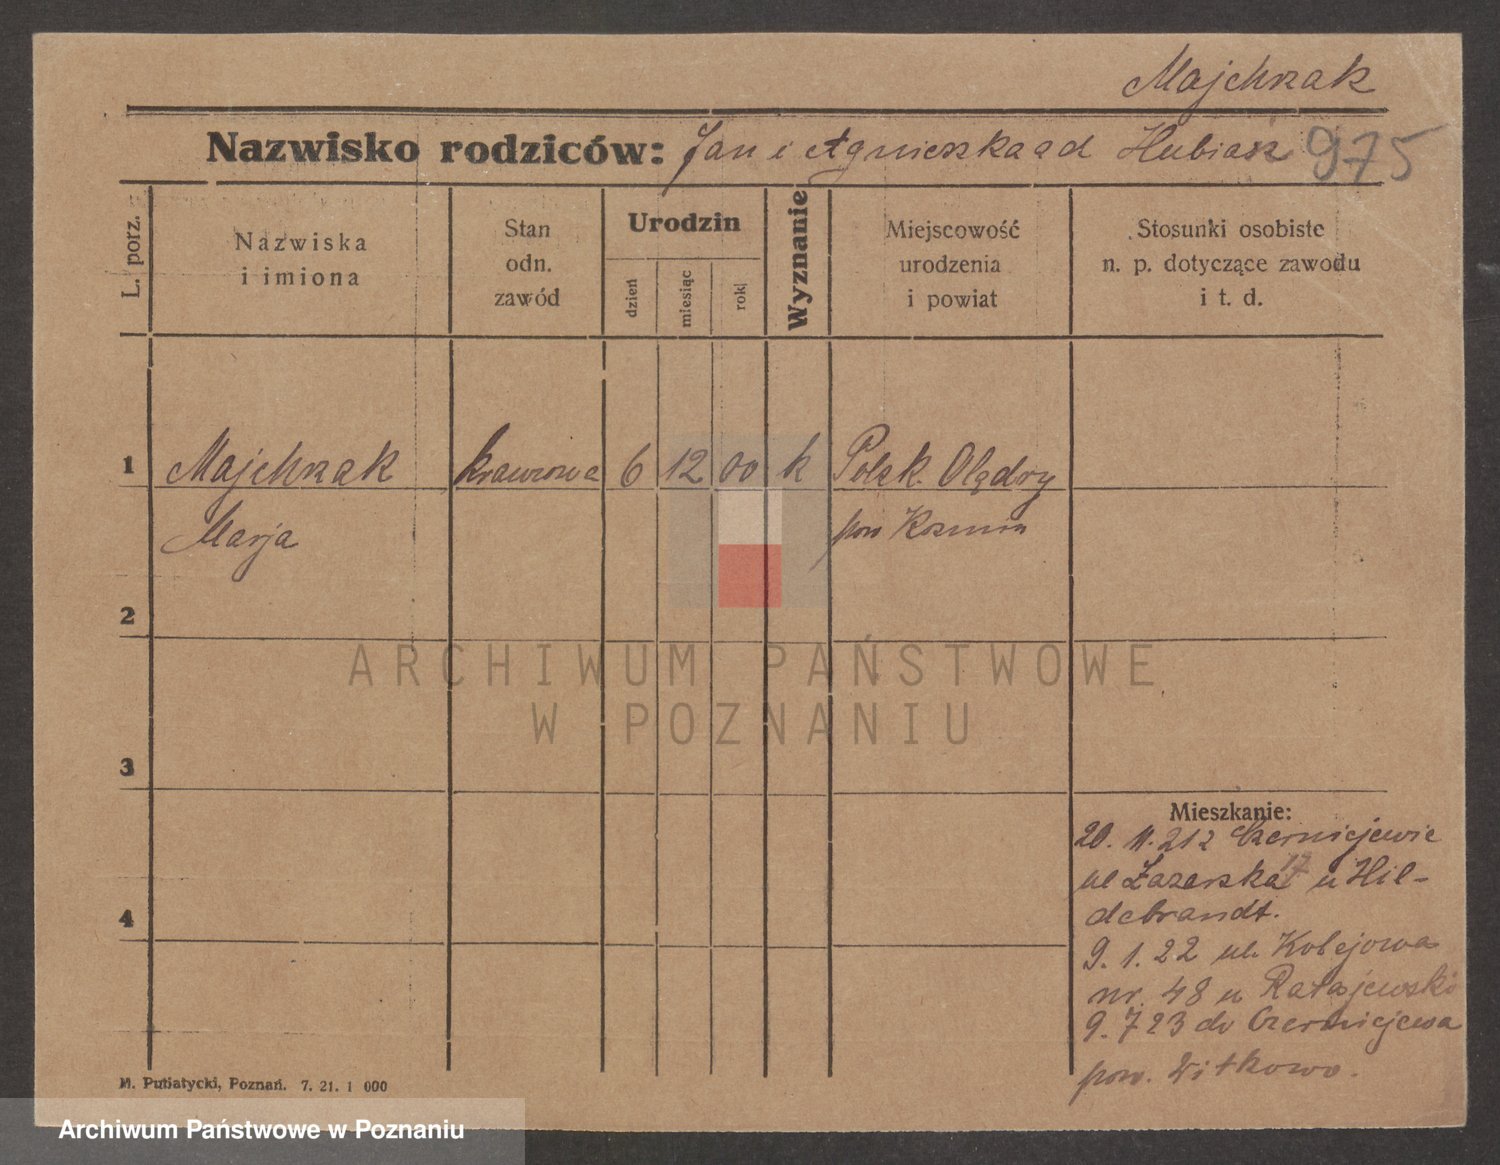 Majchrzak
Nazwisko rodziców: Jan i Agnieszka ad Hubiasz 975
L. porz.
Nazwiska
i imiona
Stan
odn.
zawód
Urodzin
dzień
miesiąc
rok
Wyznanie
Miejscowość
urodzenia
i powiat
Stosunki osobiste
n. p. dotyczące zawodu
i t. d.
1 Majchrzak krawcowa 6 12 00 k Polsk. Olędry
Marja pow Kozmin
2
ARCHIWUM PAŃSTWOWE
W POZNANIU
3
Mieszkanie:
20. 11. 21 z Czerniejewic
ul Łazarska 17 u Hil-
debrandt.
9. 1. 22 ul. Kolejowa
nr. 48 u Ratajewski
9. 7 23 do Czerniejewa
pow. Witkowo.
4
M. Putiatycki, Poznań. 7. 21. 1 000
Archiwum Państwowe w Poznaniu